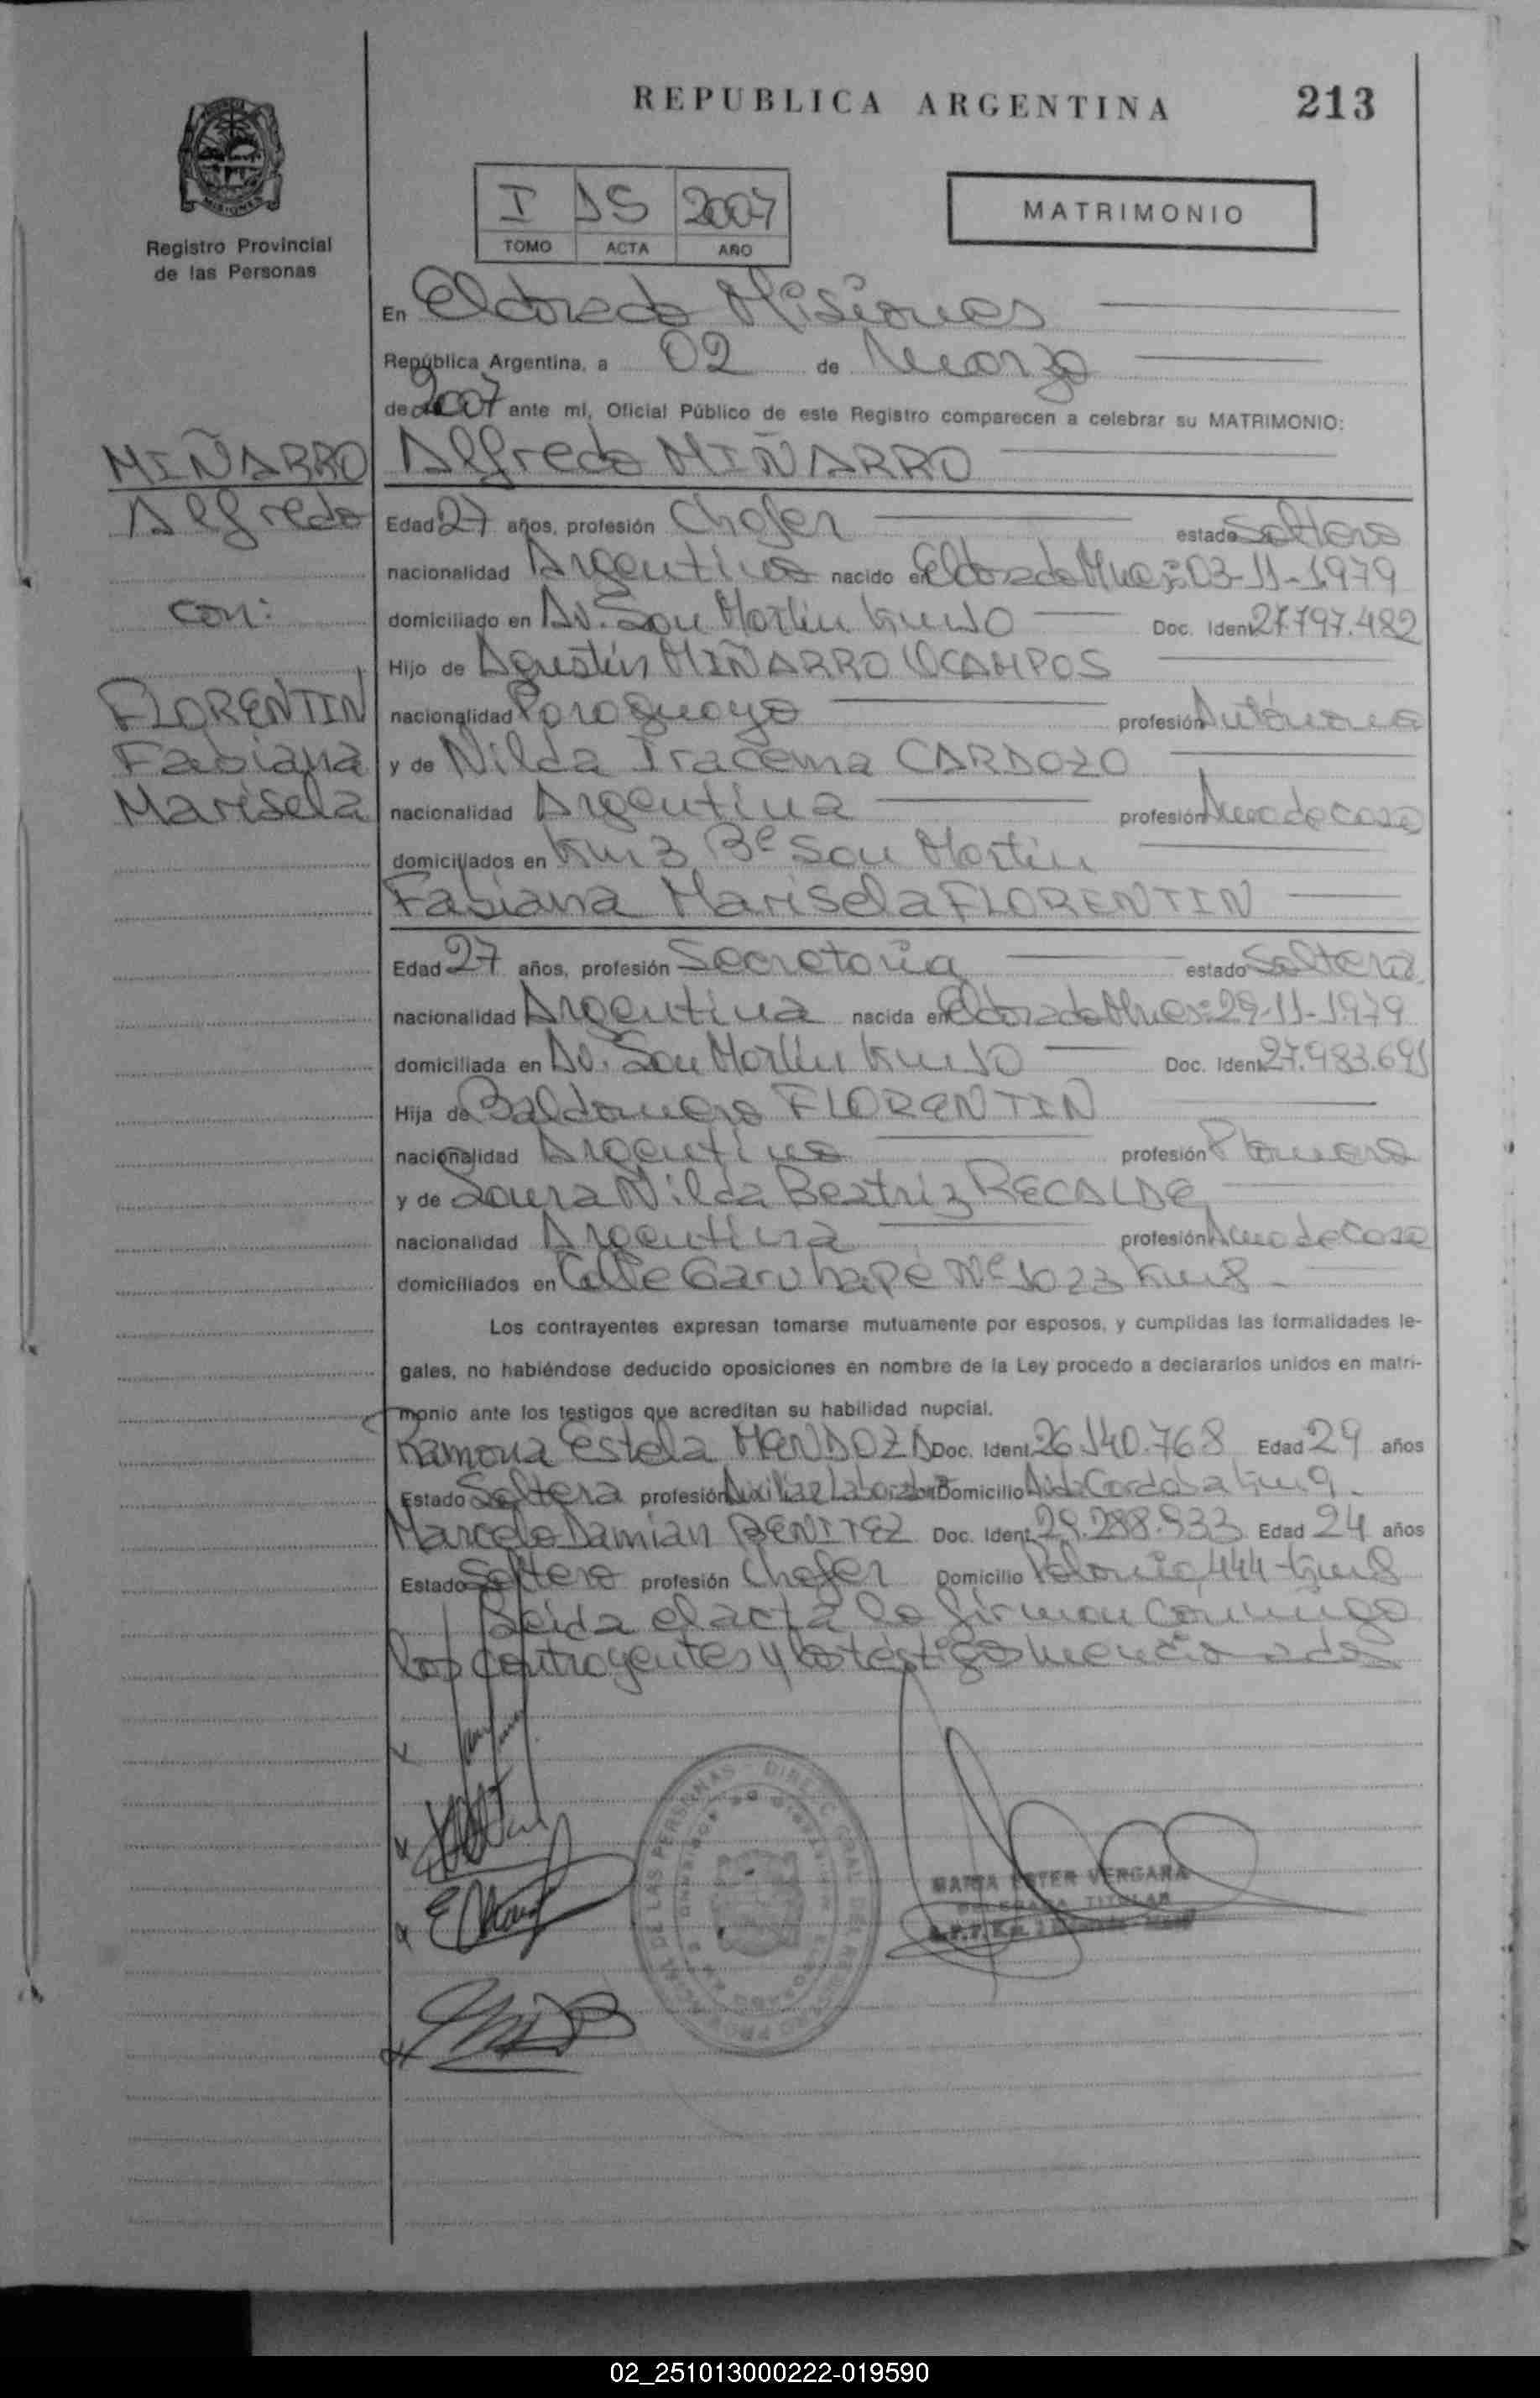 REPUBLICA ARGENTINA 213
I 15 2007
TOMO ACTA AÑO
MATRIMONIO
MISIONES
Registro Provincial
de las Personas
En Eldorado Misiones
República Argentina, a 02 de Marzo
de 2007 ante mí, Oficial Público de este Registro comparecen a celebrar su MATRIMONIO:
MIÑARRO
Alfredo
con:
FLORENTIN
Fabiana
Marisela
Alfredo MIÑARRO
Edad 27 años, profesión Chofer estado Soltero
nacionalidad Argentino nacido en Eldorado Mnes: 03-11-1979
domiciliado en Av. San Martin km 10 Doc. Ident 27.797.482
Hijo de Agustín MIÑARRO OCAMPOS
nacionalidad Paraguayo profesión Autónomo
y de Nilda Iracema CARDOZO
nacionalidad Argentina profesión Ama de casa
domiciliados en km 3 Bº San Martin
Fabiana Marisela FLORENTIN
Edad 27 años, profesión Secretaria estado Soltera
nacionalidad Argentina nacida en Eldorado Mnes: 29-11-1979
domiciliada en Av. San Martin km 10 Doc. Ident 27.983.691
Hija de Baldomero FLORENTIN
nacionalidad Argentino profesión Plomero
y de Nilda Beatriz RECALDE
nacionalidad Argentina profesión Ama de casa
domiciliados en Calle Garuhapé Nº 1023 km 8
Los contrayentes expresan tomarse mutuamente por esposos, y cumplidas las formalidades le-
gales, no habiéndose deducido oposiciones en nombre de la Ley procedo a declararlos unidos en matri-
monio ante los testigos que acreditan su habilidad nupcial.
Ramona Estela MENDOZA Doc. Ident 26.140.768 Edad 29 años
Estado Soltera profesión Auxiliar Domicilio Avda Cordoba km 9
Marcelo Damian BENITEZ Doc. Ident 29.288.933 Edad 24 años
Estado Soltero profesión Chofer Domicilio Polonia 444 - km 8
Leida el acta la firman conmigo
los contrayentes y los testigos mencionados
MARIA ESTER VERGARA
DELEGADA TITULAR
02_251013000222-019590